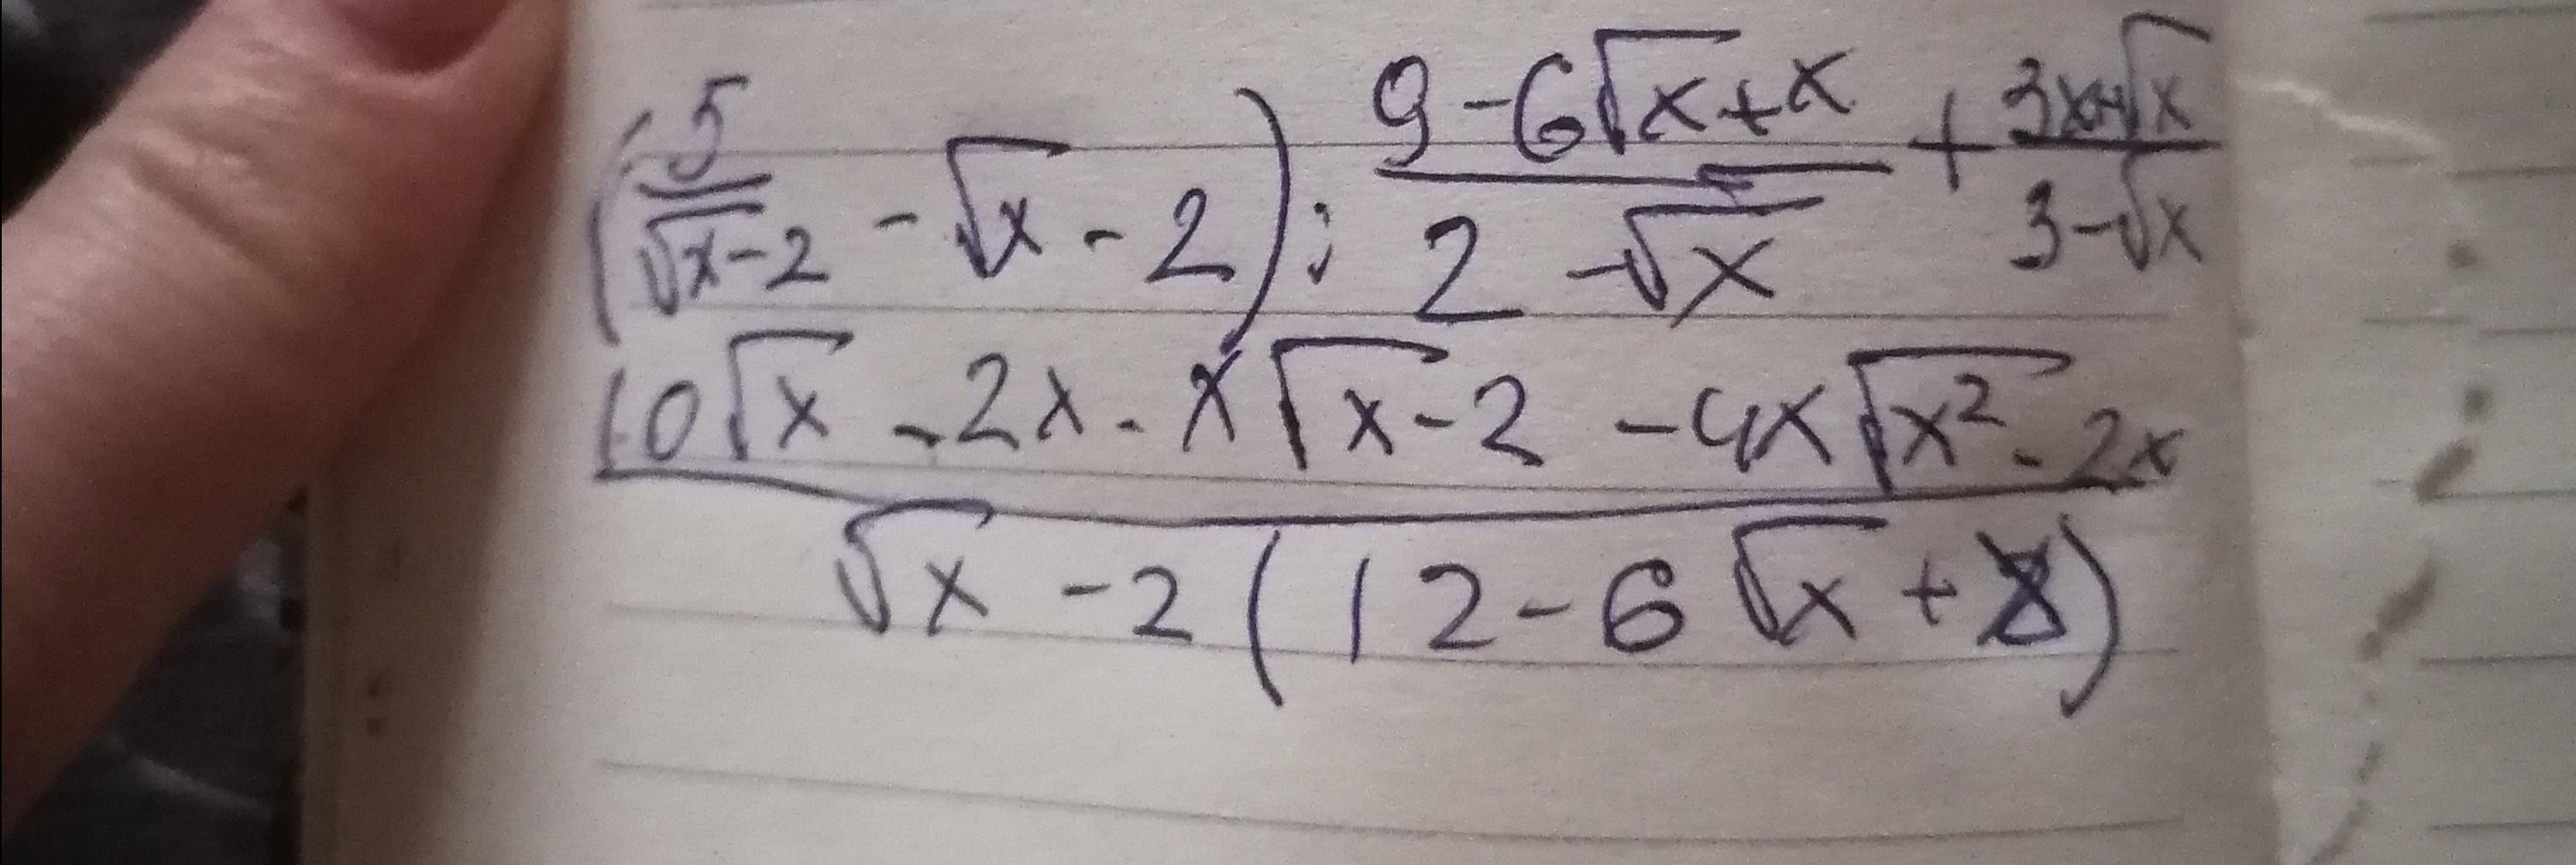 (5/(√x-2) - √x - 2) : (9-6√x+x)/(2-√x) + (3x+√x)/(3-√x)
(10√x - 2x - x√x-2 - 4x√x² - 2x)/(√x - 2(12-6√x+x))